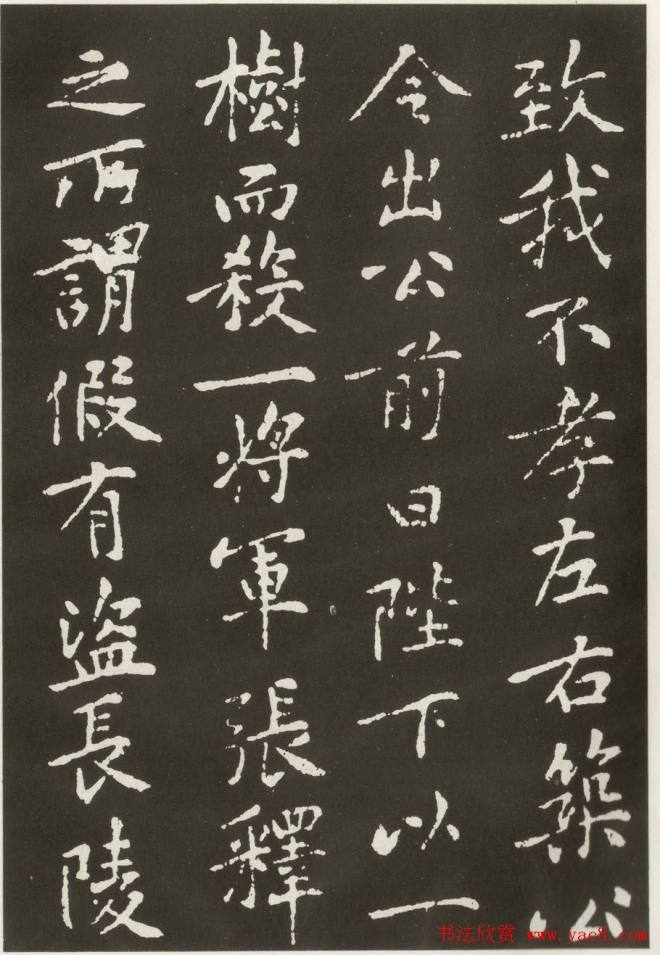 致我不孝左右築公
令出公前曰陛下以一
樹而殺一將軍張釋
之所謂假有盜長陵
书法欣赏 www.yac8.com